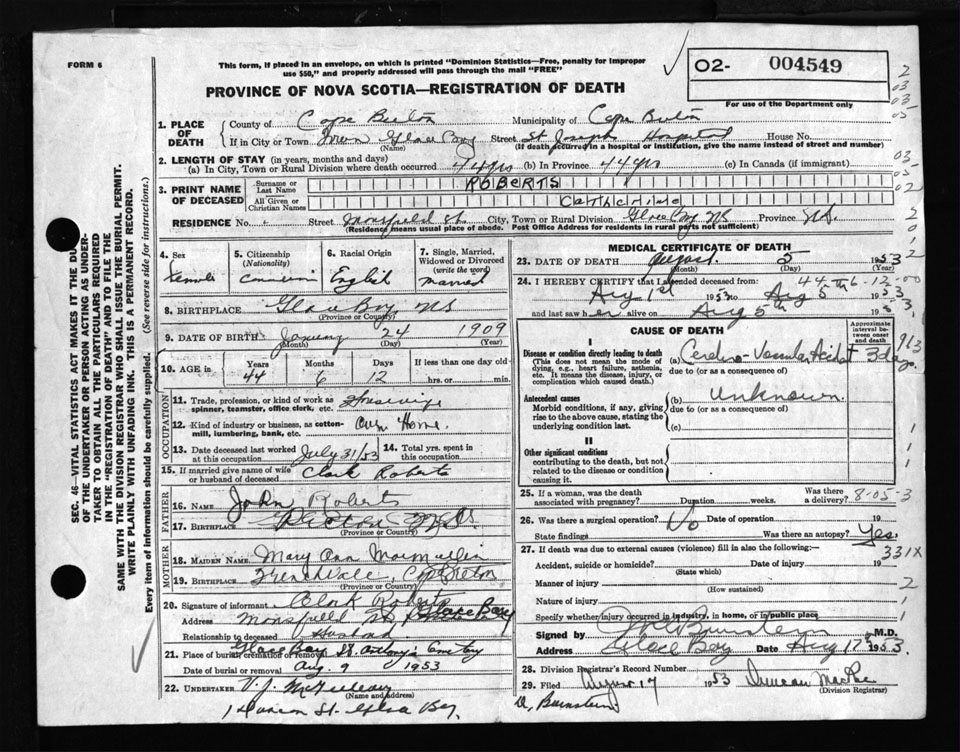 FORM 6
This form, if placed in an envelope, on which is printed "Dominion Statistics—Free, penalty for improper
use $50," and properly addressed will pass through the mail "FREE"
PROVINCE OF NOVA SCOTIA—REGISTRATION OF DEATH
O2- 004549
For use of the Department only
1. PLACE OF DEATH
County of Cape Breton Municipality of Cape Breton
If in City or Town Town Glace Bay Street St Josephs Hospital House No.
(Name) (If death occurred in a hospital or institution, give the name instead of street and number)
2. LENGTH OF STAY (in years, months and days)
(a) In City, Town or Rural Division where death occurred 44 yrs (b) In Province 44 yrs (c) In Canada (if immigrant)
3. PRINT NAME OF DECEASED
Surname or Last Name ROBERTS
All Given or Christian Names
RESIDENCE No. Street Mansfield St. City, Town or Rural Division Glace Bay NS Province N.S.
(Residence means usual place of abode. Post Office Address for residents in rural parts not sufficient)
4. Sex female
5. Citizenship (Nationality)
6. Racial Origin English
7. Single, Married, Widowed or Divorced (write the word) married
8. BIRTHPLACE Glace Bay NS
(Province or Country)
9. DATE OF BIRTH January 24 1909
(Month) (Day) (Year)
10. AGE in Years 44 Months 6 Days 12 If less than one day old
hrs. or min.
OCCUPATION
11. Trade, profession, or kind of work as spinner, teamster, office clerk, etc. Housewife
12. Kind of industry or business, as cotton-mill, lumbering, bank, etc. Own Home
13. Date deceased last worked at this occupation July 31/53
14. Total yrs. spent in this occupation
15. If married give name of wife or husband of deceased Clark Roberts
FATHER
16. NAME John Roberts
17. BIRTHPLACE Pictou N.S.
(Province or Country)
MOTHER
18. MAIDEN NAME Mary Ann MacMullin
19. BIRTHPLACE Frenchvale, Cape Breton
(Province or Country)
20. Signature of informant Clark Roberts
Address Mansfield St Glace Bay
Relationship to deceased Husband
21. Place of burial cremation or removal Glace Bay St. Anthony's Cemetry
Date of burial or removal Aug. 9 1953
22. UNDERTAKER V. J.
(Name and Address)
St. Glace Bay
MEDICAL CERTIFICATE OF DEATH
23. DATE OF DEATH August 5 1953
(Month) (Day) (Year)
24. I HEREBY CERTIFY that I attended deceased from:
Aug 1st 1953 to Aug 5th 1953
and last saw her alive on Aug 5th 195
CAUSE OF DEATH
Approximate interval between onset and death
I
Disease or condition directly leading to death
(This does not mean the mode of dying, e.g., heart failure, asthenia, etc. It means the disease, injury, or complication which caused death.
(a) Cerebro-Vascular Accident 3 days
due to (or as a consequence of)
Antecedent causes
Morbid conditions, if any, giving rise to the above cause, stating the underlying condition last.
(b) Unknown.
due to (or as a consequence of)
(c)
II
Other significant conditions
contributing to the death, but not related to the disease or condition causing it.
25. If a woman, was the death associated with pregnancy? Duration weeks. Was there a delivery? 8-05-3
26. Was there a surgical operation? No Date of operation 19
State findings Was there an autopsy? Yes.
27. If death was due to external causes (violence) fill in also the following:— 331X
Accident, suicide or homicide? Date of injury 19
(State which)
Manner of injury
(How sustained)
Nature of injury
Specify whether injury occurred in industry, in home, or in public place
Signed by M.D.
Address Glace Bay Date Aug 17th 1953.
28. Division Registrar's Record Number
29. Filed August 17 1953 Duncan MacRae
(Division Registrar)
SEC. 46—VITAL STATISTICS ACT MAKES IT THE DUTY
OF THE UNDERTAKER OR PERSON ACTING AS UNDER-
TAKER TO OBTAIN ALL THE PARTICULARS REQUIRED
IN THE "REGISTRATION OF DEATH" AND TO FILE THE
SAME WITH THE DIVISION REGISTRAR WHO SHALL ISSUE THE BURIAL PERMIT.
WRITE PLAINLY WITH UNFADING INK. THIS IS A PERMANENT RECORD.
Every item of information should be carefully supplied. (See reverse side for instructions.)